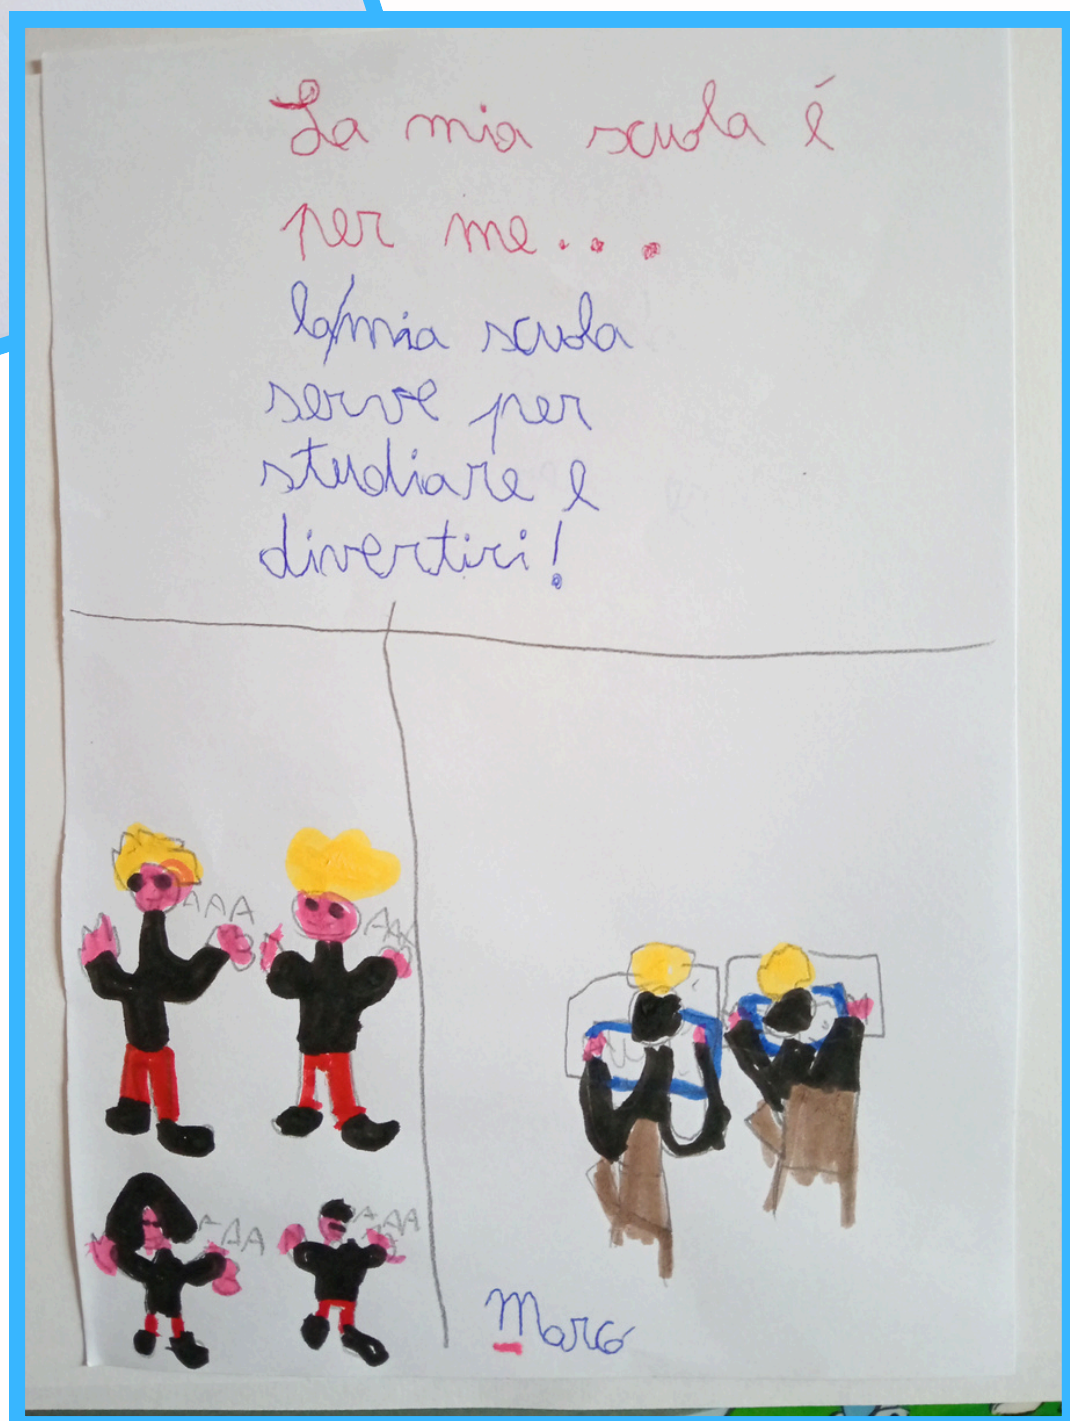 La mia scuola é
per me...
la/mia scuola
serve per
studiare e
divertirci!
AAA
AAA
AAA
AAAA
Marco